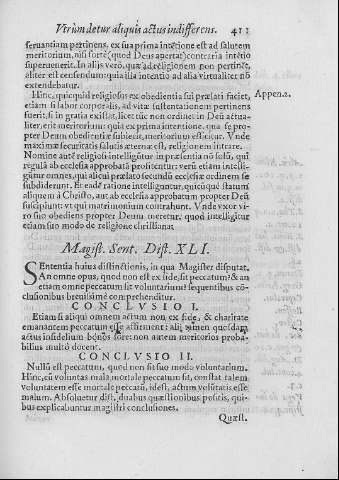 Vtrùm detur aliquis actus indifferens. 411
seruantiam pertinens, ex sua prima intẽtione est ad salutem
meritorium, nisi fortè (quod Deus apertat) contraria intẽtio
superuenerit. In alijs verò, quæ ad religionem non pertinẽt,
aliter est censendum: quia illa intentio ad alia virtualiter nõ
extendebatur.
Hinc, quicquid religiosus ex obedientia sui prælati faciet, Appen. 2.
etiam si labor corporalis, ad vitæ sustentationem pertinens
fuerit, si in gratia existat, licet tũc non ordinet in Deũ actua-
liter, erit meritorium: quia ex prima intentione, qua se pro-
pter Deum obedientiæ subiecit, meritorium efficitur. Vnde
maximæ securitatis salutis æternæ est, religionem intrare.
Nomine autẽ religiosi intelligitur in præsentia nõ solũ, qui
regulã ab ecclesia approbatã profitentur: verũ etiam intelli-
guntur omnes, qui alicui prælato secundũ ecclesiæ ordinem se
subdiderunt. Et eadẽ ratione intelliguntur, quicũque statum
aliquem à Christo, aut ab ecclesia approbatum propter Deũ
suscipiunt: vt qui matrimonium contrahunt. Vnde vxor vi-
ro suo obediens propter Deum meretur, quod intelligitur
etiam suo modo de religione christiana.
Magist. Sent. Dist. XLI.
SEntentia huius distinctionis, in qua Magister disputat,
An omne opus, quod non est ex fide, sit peccatum? & an
etiam omne peccatum sit voluntarium? sequentibus cõ-
clusionibus breuissimè comprehenditur.
CONCLVSIO I.
Etiam si aliqui omnem actum non ex fide, & charitate
emanantem peccatum esse affirment: alij tamen quosdam
actus infidelium bonos fore: non autem meritorios proba-
bilius multò docent.
CONCLVSIO II.
Nullũ est peccatum, quod non sit suo modo voluntarium.
Hinc, cũ voluntas mala mortale peccatum sit, constat talem
voluntatem esse mortale peccatũ, idest, actum volũtatis esse
malum. Absoluetur dist. duabus quæstionibus positis, qui-
bus explicabuntur magistri conclusiones.
Quæst.